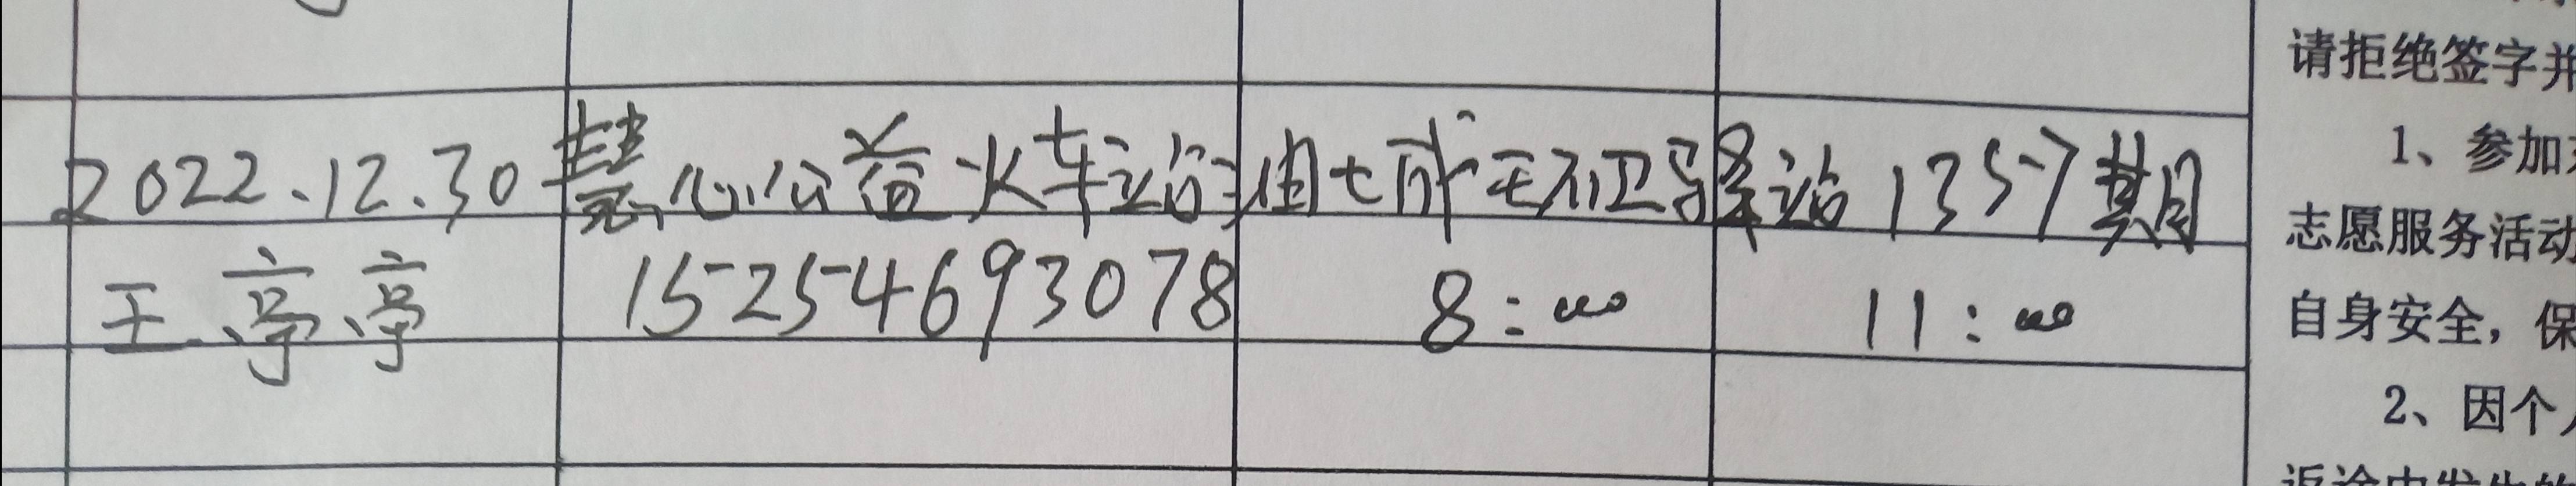 2022.12.30 慧心公益火车站 1357期
王亭亭 15254693078 8:00 11:00
请拒绝签字并
1、参加
志愿服务活动
自身安全，保
2、因个